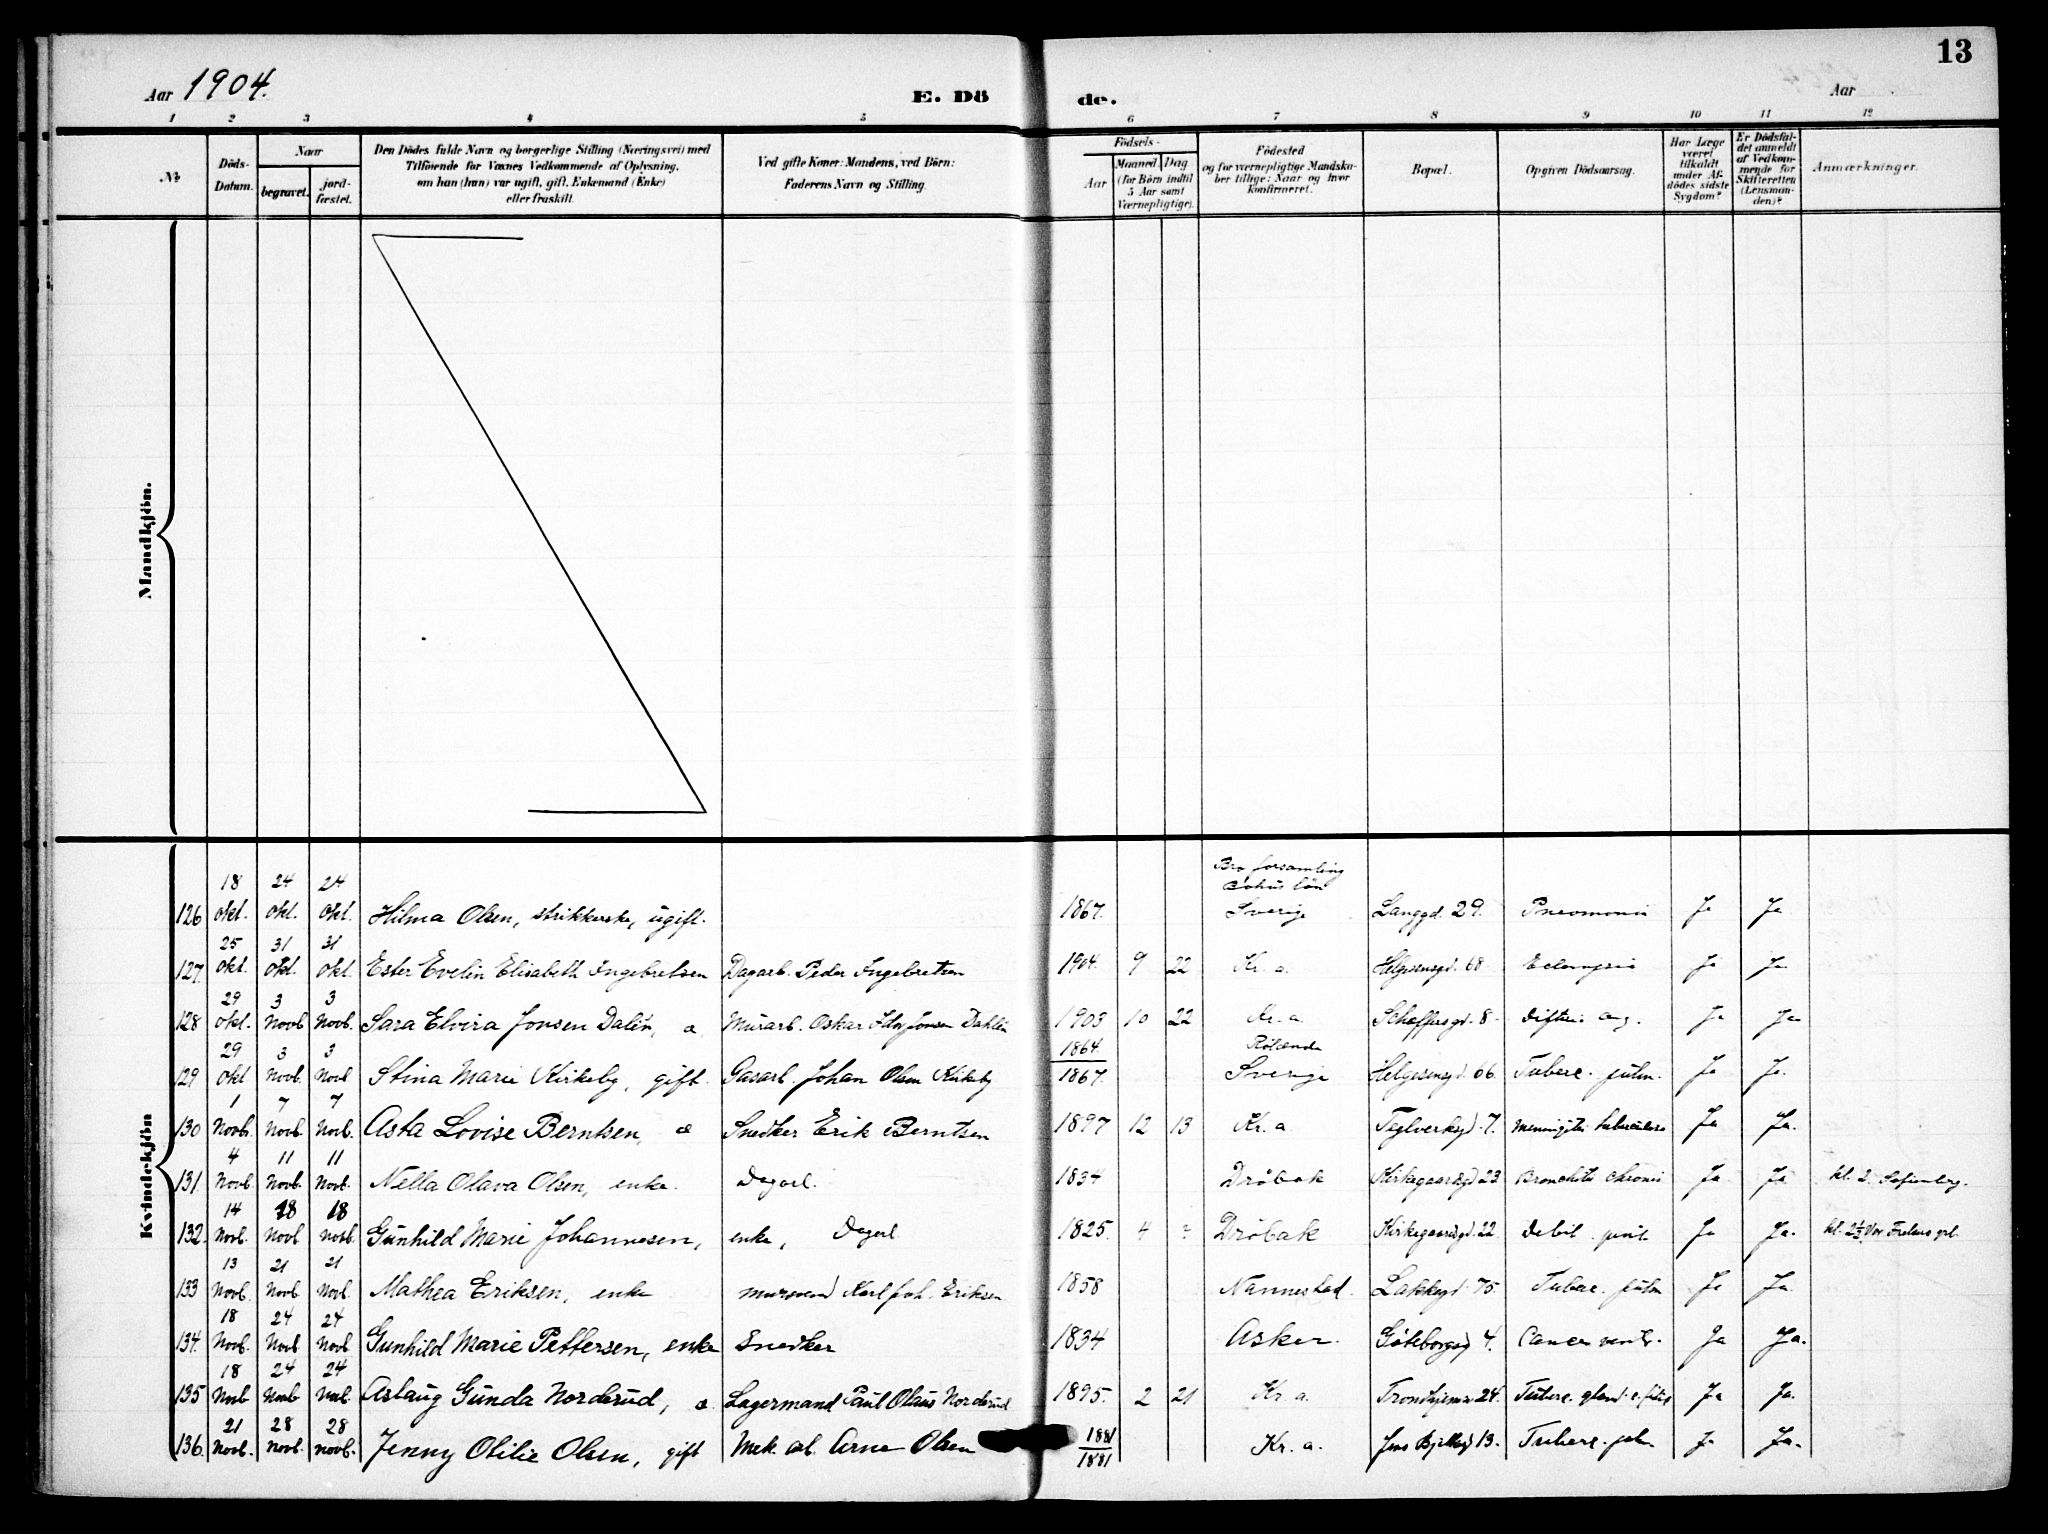 13
Aar 1904.
E. Dö
de.
Aar
1 2 3 4 5 6 7 8 9 10 11 12
№
Döds-
Datum.
Naar
begravet.
jord-
fæstet.
Den Dödes fulde Navn og borgerlige Stilling (Næringsvei) med
Tilföiende for Voxnes Vedkommende af Oplysning,
om han (hun) var ugift, gift, Enkemand (Enke)
eller fraskilt.
Ved gifte Koner: Mandens, ved Börn:
Faderens Navn og Stilling.
Födsels-
Aar
Maaned Dag
(for Börn indtil
5 Aar samt
Værnepligtige).
Födested
og for værnepligtige Mandska-
ber tillige: Naar og hvor
Konfirmeret.
Bopæl.
Opgiven Dödsaarsag.
Har Læge
været
tilkaldt
under Af-
dödes sidste
Sygdom?
Er Dödsfal-
det anmeldt
af Vedkom-
mende for
Skifteretten
(Lensman-
den)?
Anmærkninger.
Mandkjön.
Kvindekjön
126 18 Okt. 24 Okt. 24 Okt. Hilma Olsen, strikkerske, ugift. 1867. Bro forsamling Sverige Langgd. 29. Pneomoni Ja Ja
127. 25 Okt. 31 Okt. 31 Okt. Ester Evelin Elisabeth Ingebretsen Dagarb. Peder Ingebretsen 1904. 9 22 Kr. a. Helgesensgd. 68 Eclampsia Ja Ja
128 29 Okt. 3 Novb 3 Novb. Sara Elvira Jonsen Dalén, Murarb. Oskar Jonsen Dahlén 1903 10 22 Kr. a. Scheffersgd. 8. Difteri Ja Ja
129 29 Okt 3 Novb. 3 Novb Stina Marie Kirkeby, gift. Gasarb. Johan Olsen Kirkeby 1864. 1867. Sverige Helgesensgd. 66. Tuberc. pulm. Ja Ja.
130 1 Novb. 7 Novb. 7 Novb. Asta Lovise Berntsen, Snedker Erik Berntsen 1897 12 13 Kr. a Teglverksgd. 7. Meningitis tuberculosa Ja Ja.
131. 4 Novb 11 Novb. 11 Novb. Nella Olava Olsen, enke. Dagarb. 1834 Dröbak Kirkegaardsgd 23 Bronchitis chronic Ja Ja kl. 2. Sofienberg.
132. 14 Novb. 18 Novb 18 Novb. Gunhild Marie Johannesen, enke, Dagarb. 1825. 4 ? Dröbak Kirkegaardsgd. 22. Debil. senil Ja Ja. kl. 2½ Vor Frelsers grl.
133 13 Novb. 21 Novb. 21 Novb. Mathea Eriksen, enke mursvend Karl Joh. Eriksen 1858 Nannestad. Lakkegd. 75. Tuberc. pulm Ja Ja
134. 18 Novb. 24 Novb 24 Novb Gunhild Marie Pettersen, enke Snedker 1834 Asker. Göteborgsgd 4. Cancer ventr. Ja Ja.
135 18 Novb 24 Novb 24 Novb. Aslaug Gunda Norderud, Lagermand Paul Olaus Norderud 1895. 2 21 Kr. a. Trondhjemsv 24. Tuberc. gland. Ja Ja.
136. 21 Novb. 28 Novb. 28 Novb. Jenny Otilie Olsen, gift Mek. arb. Arne Olsen 1881 1881 Kr. a. Jens Bjelkesgd 13. Tuberc. pulm Ja Ja.